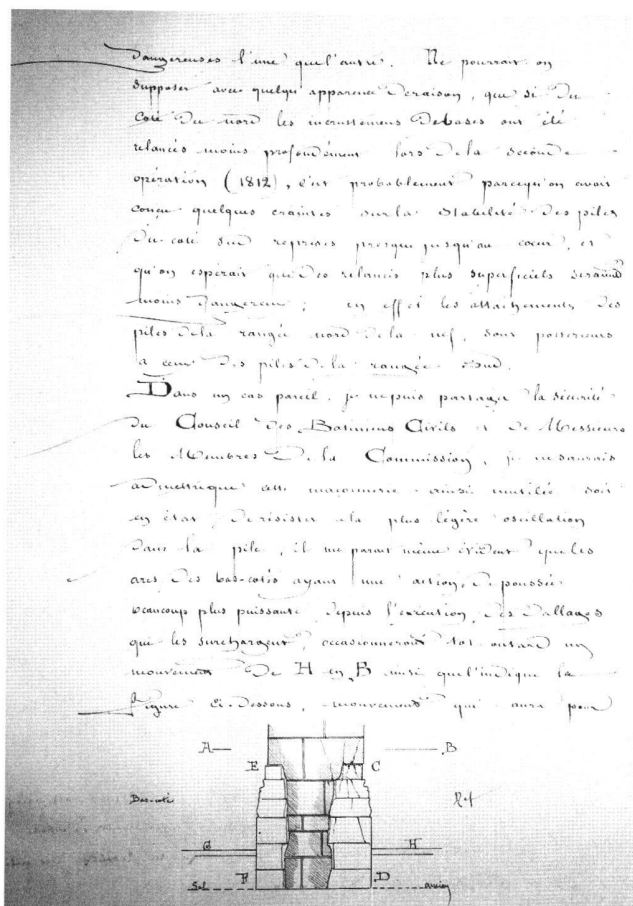 dangereuses l'une que l'autre. Ne pourrait on
supposer avec quelqu'apparence de raison, que si du
coté du nord les incrustemens de bases ont été
relancés moins profondément lors de la seconde
opération (1812), c'est probablement parcequ'on avait
conçu quelques craintes sur la stabilité des piles
du coté sud reprises presque jusqu'au coeur, et
qu'on espérait que des relancis plus superficiels seraient
moins dangereux ; en effet les attachements des
piles de la rangée nord de la nef, sont posterieurs
a ceux des piles de la rangée sud.
Dans un cas pareil, je ne puis partager la sécurité
du Conseil des Batimens Civils et de Messieurs
les Membres de la Commission, je ne saurais
admettre que cette maçonnerie ainsi mutilée soit
en état de résister a la plus légère oscillation
dans la pile, il me parait même évident que les
arcs des bas-cotés ayant une action de poussée
beaucoup plus puissante depuis l'execution des dallages
que les surchargent, occasionneront tot ou tard un
mouvement de H en B ainsi que l'indique la
figure ci-dessous, mouvement qui aura pour
A B
E C
Bas-coté Nef
G H
F D
Sol ancien